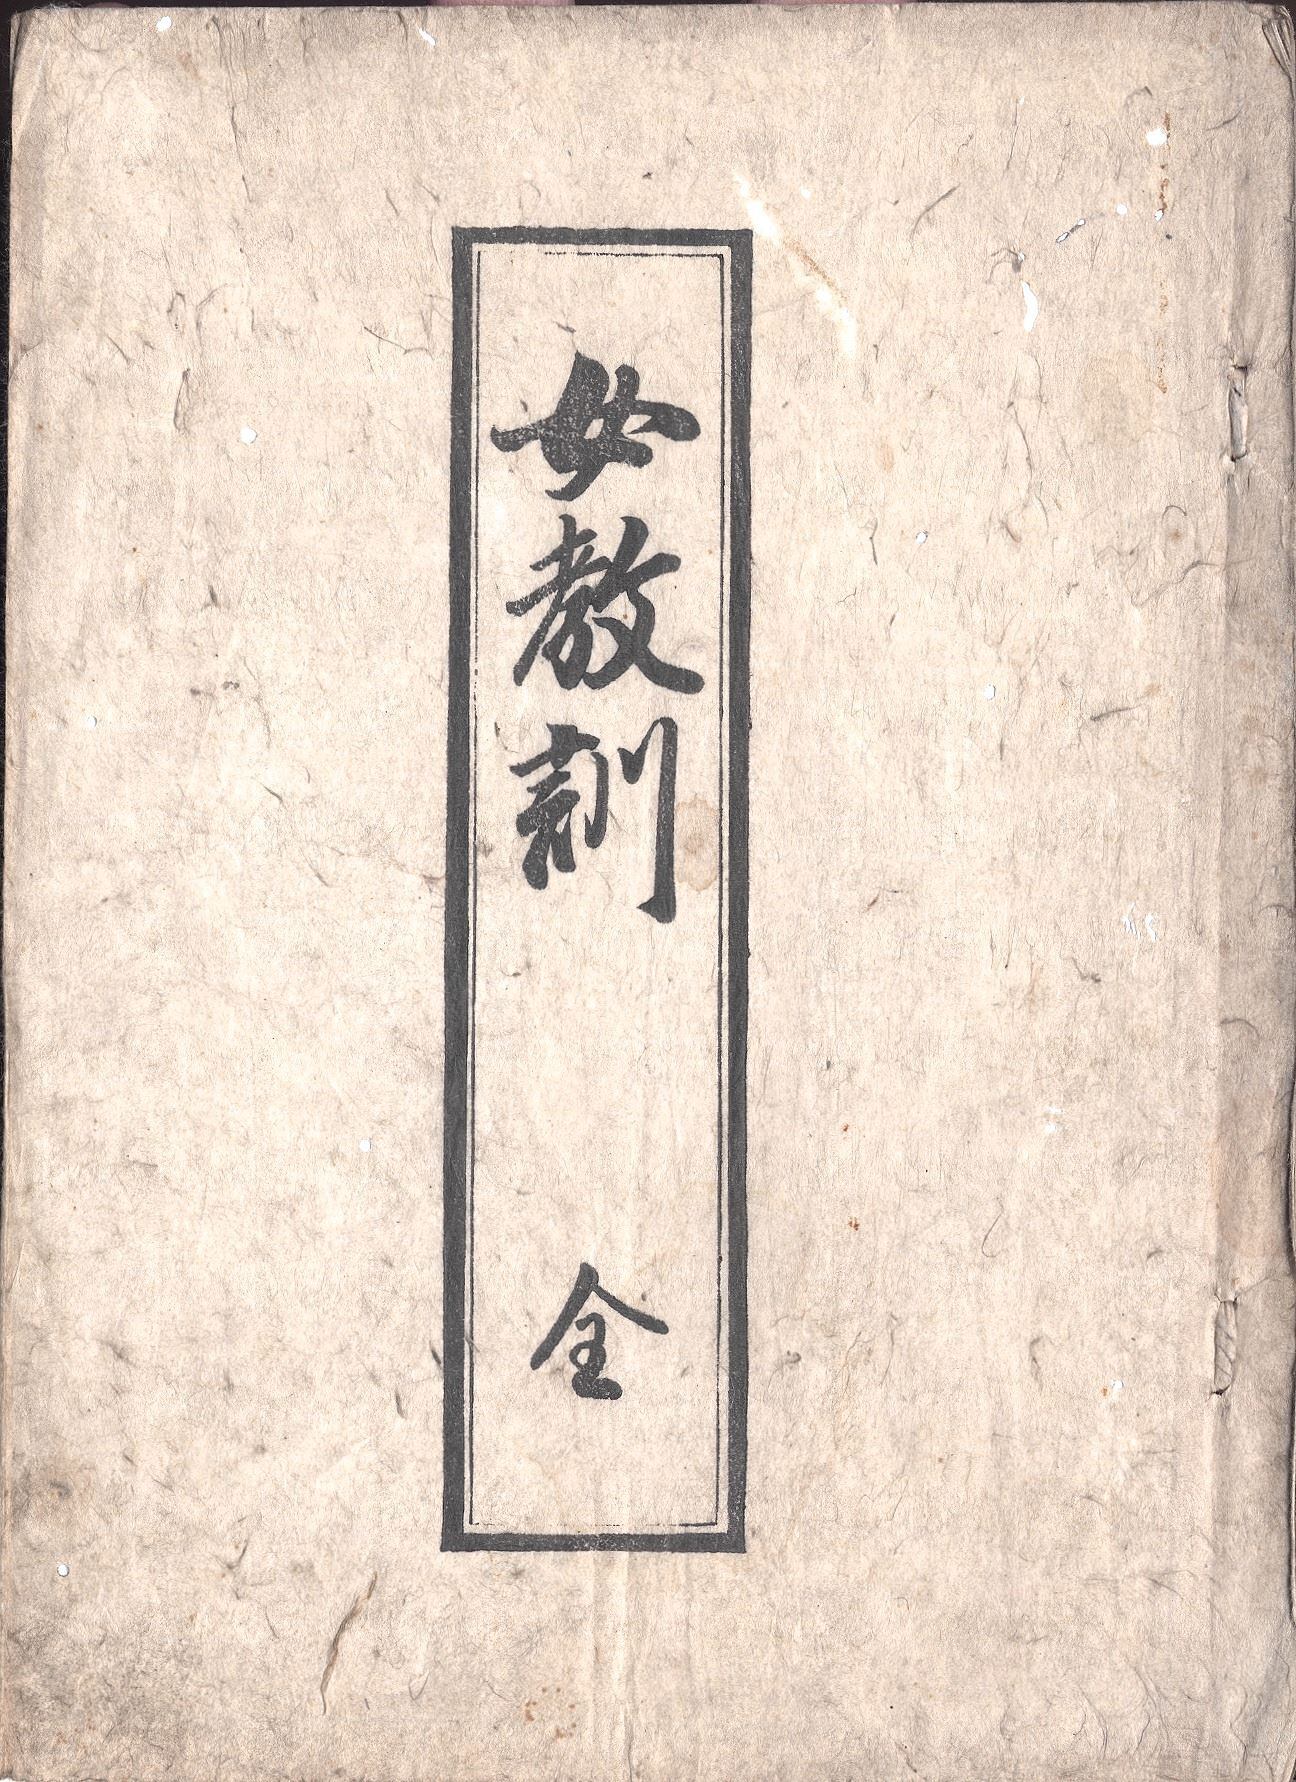 女教訓
全